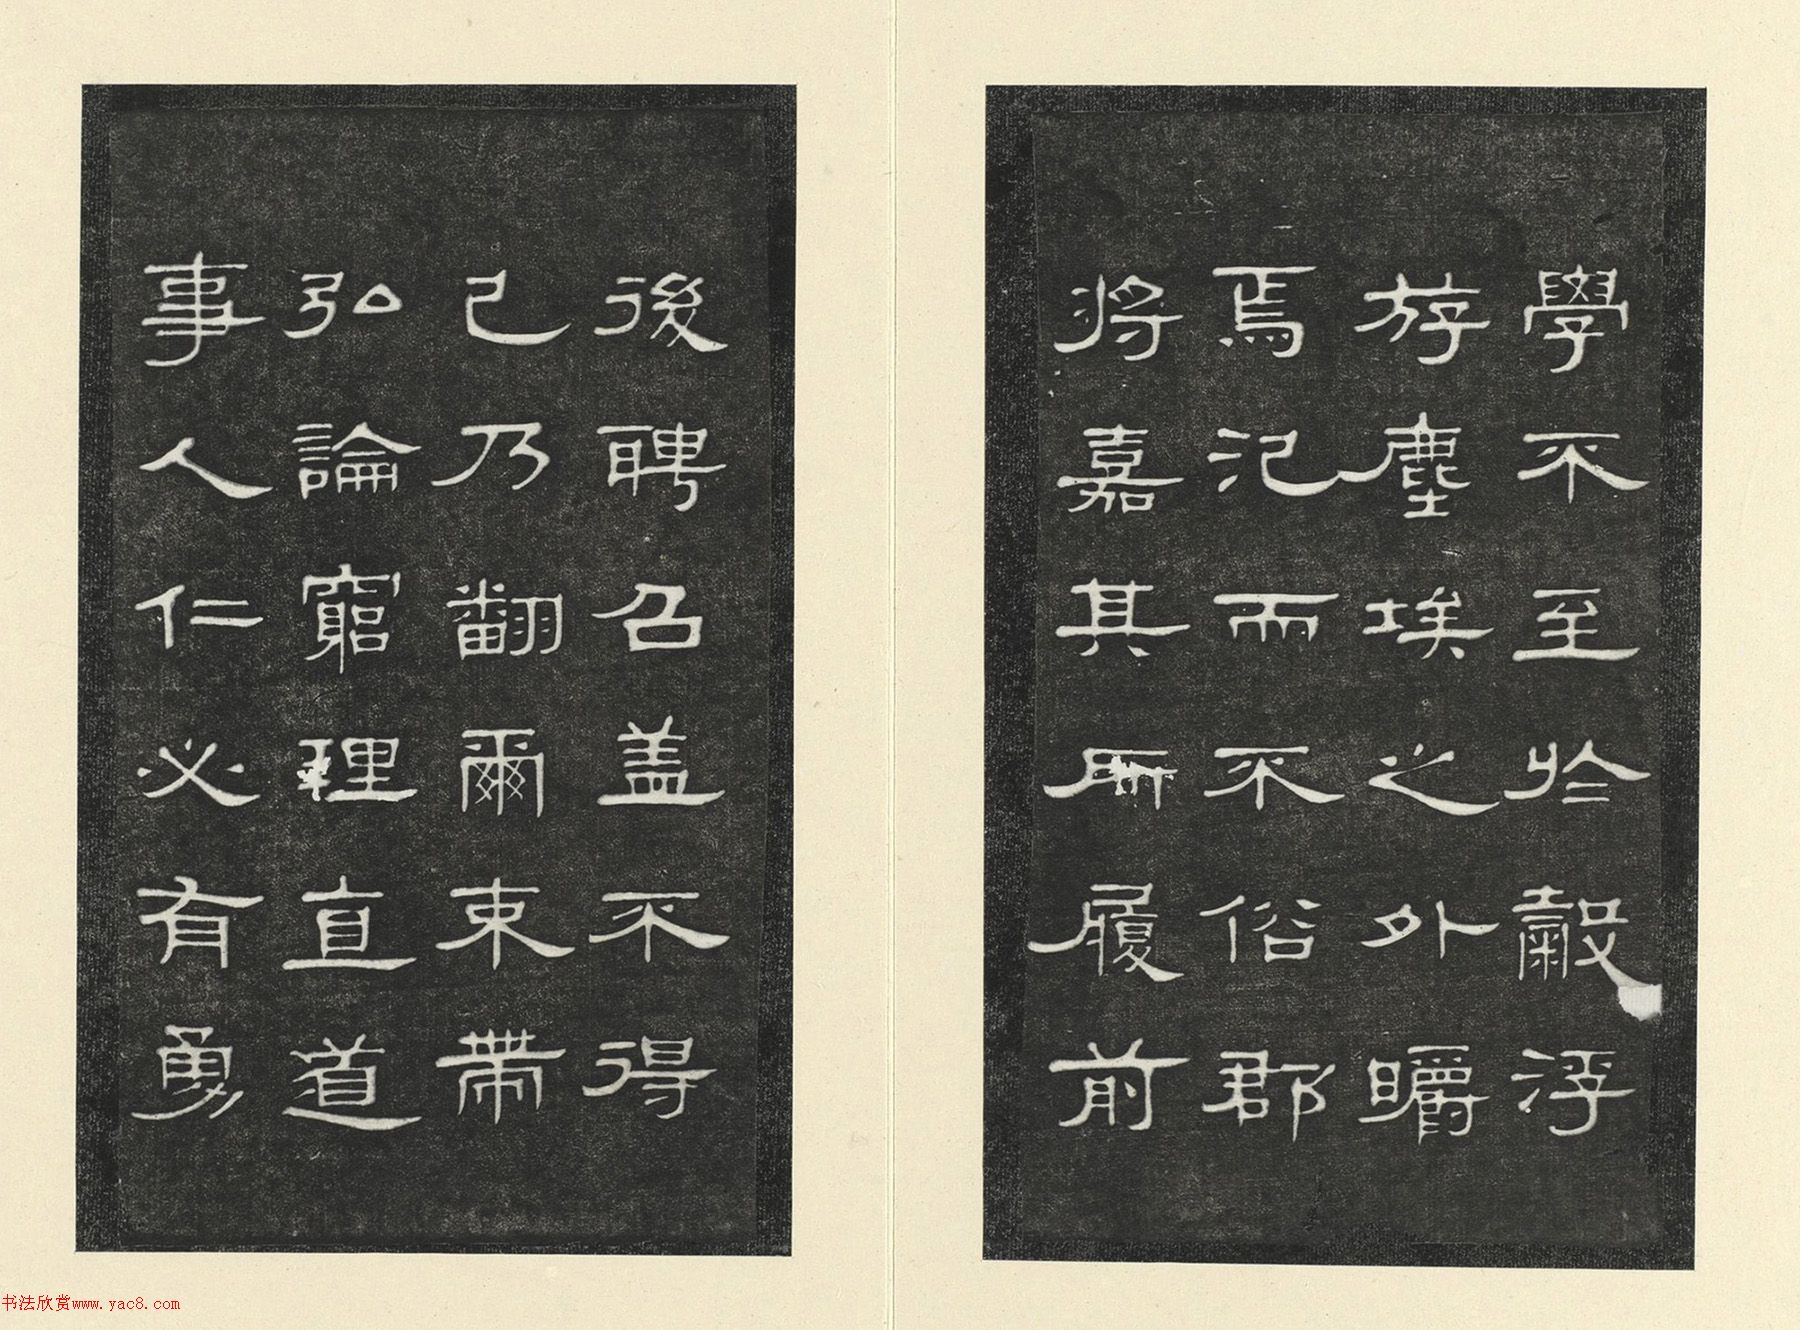 學不至於穀浮
游塵埃之外皭
焉氾而不俗郡
將嘉其所履前
後聘召盖不得
已乃翻爾束帶
弘論窮理直道
事人仁必有勇
书法欣赏www.yac8.com